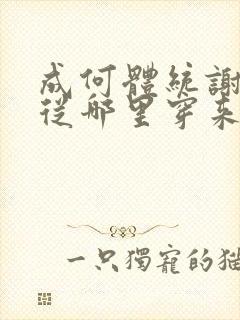 成何體統謝
從哪里穿來
一只獨寵的貓